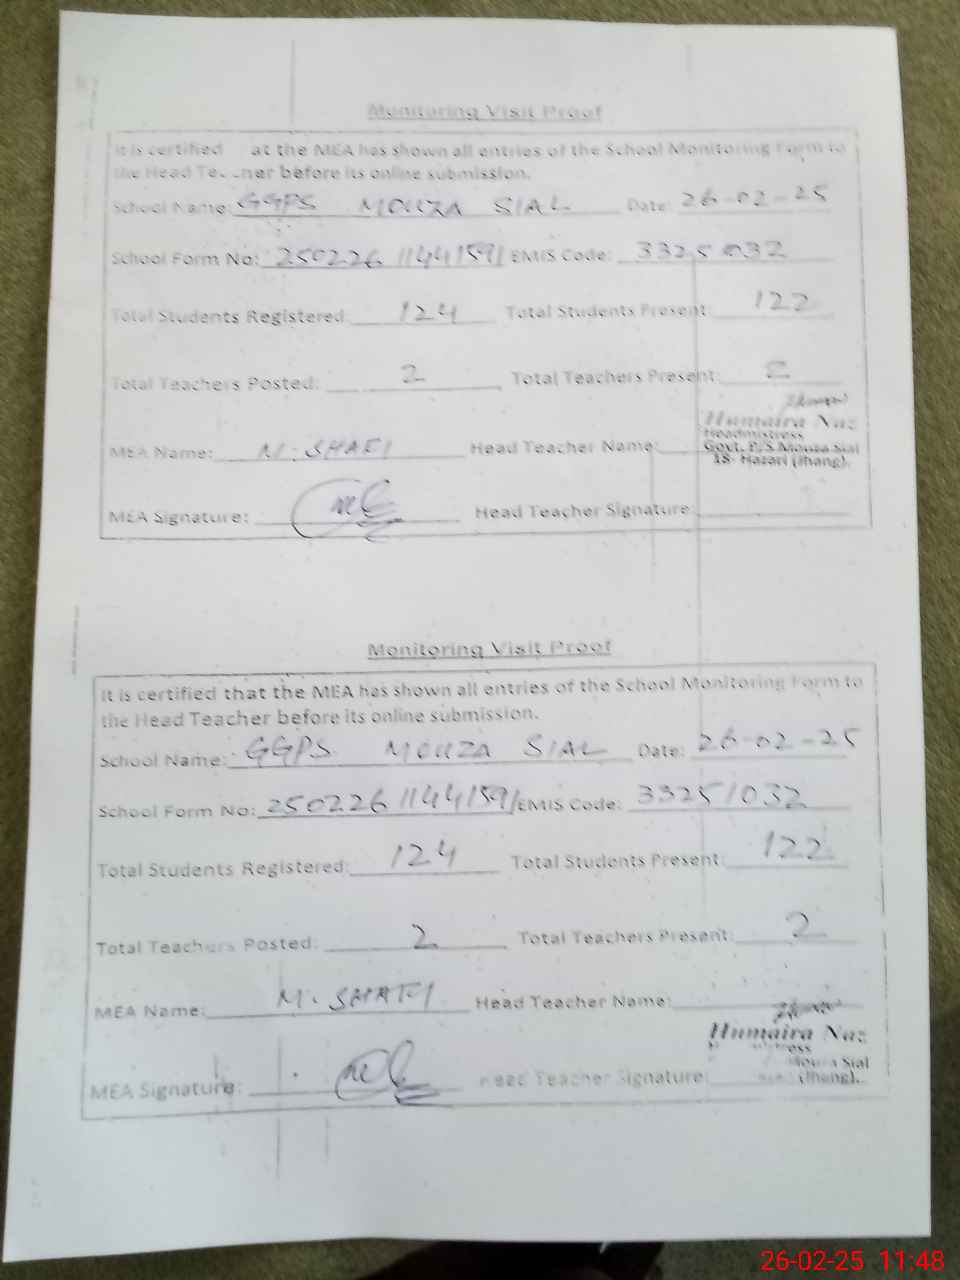 Monitoring Visit Proof
It is certified at the MEA has shown all entries of the School Monitoring Form to
the Head Teacher before its online submission.
School Name: GGPS MOUZA SIAL Date: 26-02-25
School Form No: 250226 11441591 EMIS Code: 33251032
Total Students Registered: 124 Total Students Present: 122
Total Teachers Posted: 2 Total Teachers Present: 2
MEA Name: M. SHAFI Head Teacher Name:
Humaira Naz
Headmistress
Govt. P/S Mouza Sial
18- Hazari (Jhang).
MEA Signature: Head Teacher Signature:
Monitoring Visit Proof
It is certified that the MEA has shown all entries of the School Monitoring Form to
the Head Teacher before its online submission.
School Name: GGPS MOUZA SIAL Date: 26-02-25
School Form No: 250226 11441591 EMIS Code: 33251032
Total Students Registered: 124 Total Students Present: 122
Total Teachers Posted: 2 Total Teachers Present: 2
MEA Name: M. SHAFI Head Teacher Name:
Humaira Naz
Mouza Sial
(Jhang).
MEA Signature: Head Teacher Signature:
26-02-25 11:48